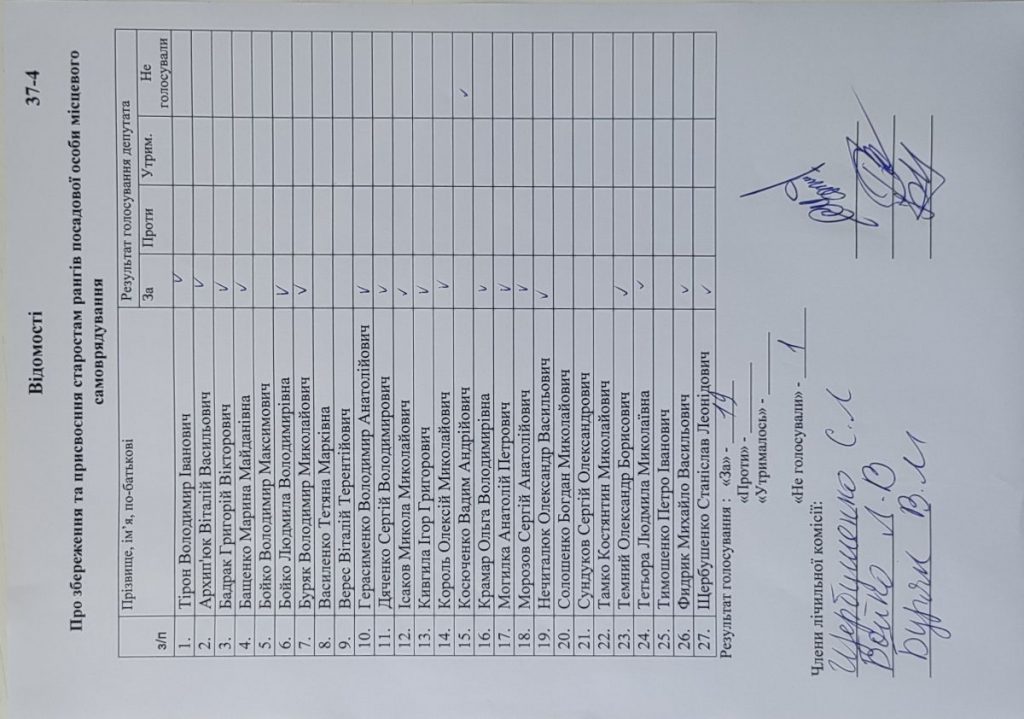 Відомості 37-4
Про збереження та присвоєння старостам рангів посадової особи місцевого
самоврядування
з/п Прізвище, ім’я, по-батькові Результат голосування депутата
За Проти Утрим. Не голосували
1. Тірон Володимир Іванович ✓
2. Архип'юк Віталій Васильович ✓
3. Бадрак Григорій Вікторович ✓
4. Бащенко Марина Майданівна ✓
5. Бойко Володимир Максимович
6. Бойко Людмила Володимирівна ✓
7. Буряк Володимир Миколайович ✓
8. Василенко Тетяна Марківна
9. Верес Віталій Терентійович
10. Герасименко Володимир Анатолійович ✓
11. Дяченко Сергій Володимирович ✓
12. Ісаков Микола Миколайович ✓
13. Кивгила Ігор Григорович ✓
14. Король Олексій Миколайович ✓
15. Косюченко Вадим Андрійович ✓
16. Крамар Ольга Володимирівна ✓
17. Могилка Анатолій Петрович ✓
18. Морозов Сергій Анатолійович ✓
19. Нечиталюк Олександр Васильович ✓
20. Солошенко Богдан Миколайович
21. Сундуков Сергій Олександрович
22. Тамко Костянтин Миколайович
23. Темний Олександр Борисович ✓
24. Тетьора Людмила Миколаївна ✓
25. Тимошенко Петро Іванович
26. Фидрик Михайло Васильович ✓
27. Щербушенко Станіслав Леонідович ✓
Результат голосування : «За» - 19
«Проти» -
«Утрималось» -
«Не голосували» - 1
Члени лічильної комісії:
Щербушенко С.Л
Бойко Л.В
Буряк В.М